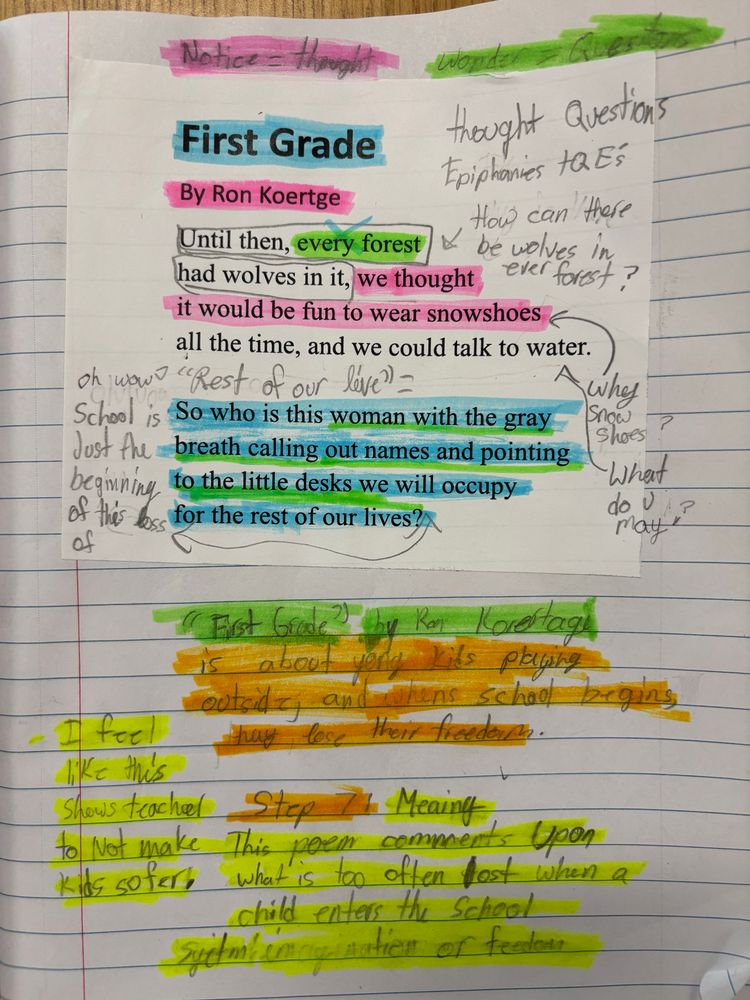 Notice = thought
Wonder = Questions
thought Questions
Epiphanies tQE's
First Grade
By Ron Koertge
How can there
be wolves in
ever forest?
Until then, every forest
had wolves in it, we thought
it would be fun to wear snowshoes
all the time, and we could talk to water.
Why
snow
shoes?
What
do u
may?
oh wow
"Rest of our live" =
School is
Just the
beginning
of this loss
of
So who is this woman with the gray
breath calling out names and pointing
to the little desks we will occupy
for the rest of our lives?
"First Grade" by Ron
is about yong kids playing
outside, and whens school begins,
hay lose their freedom.
- I feel
like this
shows teacher
to Not make
kids sofer.
Step 7: Meaing
This poem comments Upon
what is too often lost when a
child enters the School
or feedom